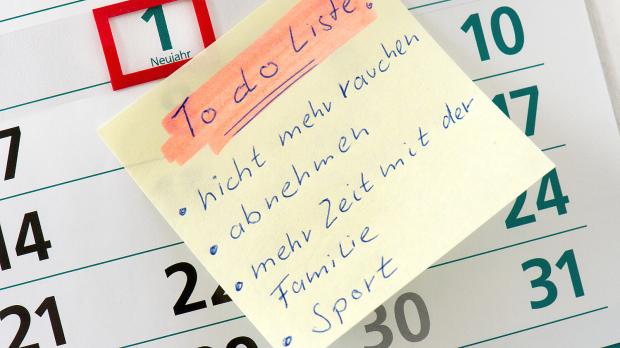 1
Neujahr
10
To do Liste:
• nicht mehr rauchen
• abnehmen
• mehr Zeit mit der
Familie
• Sport
7
17
14
24
21
22
30
31